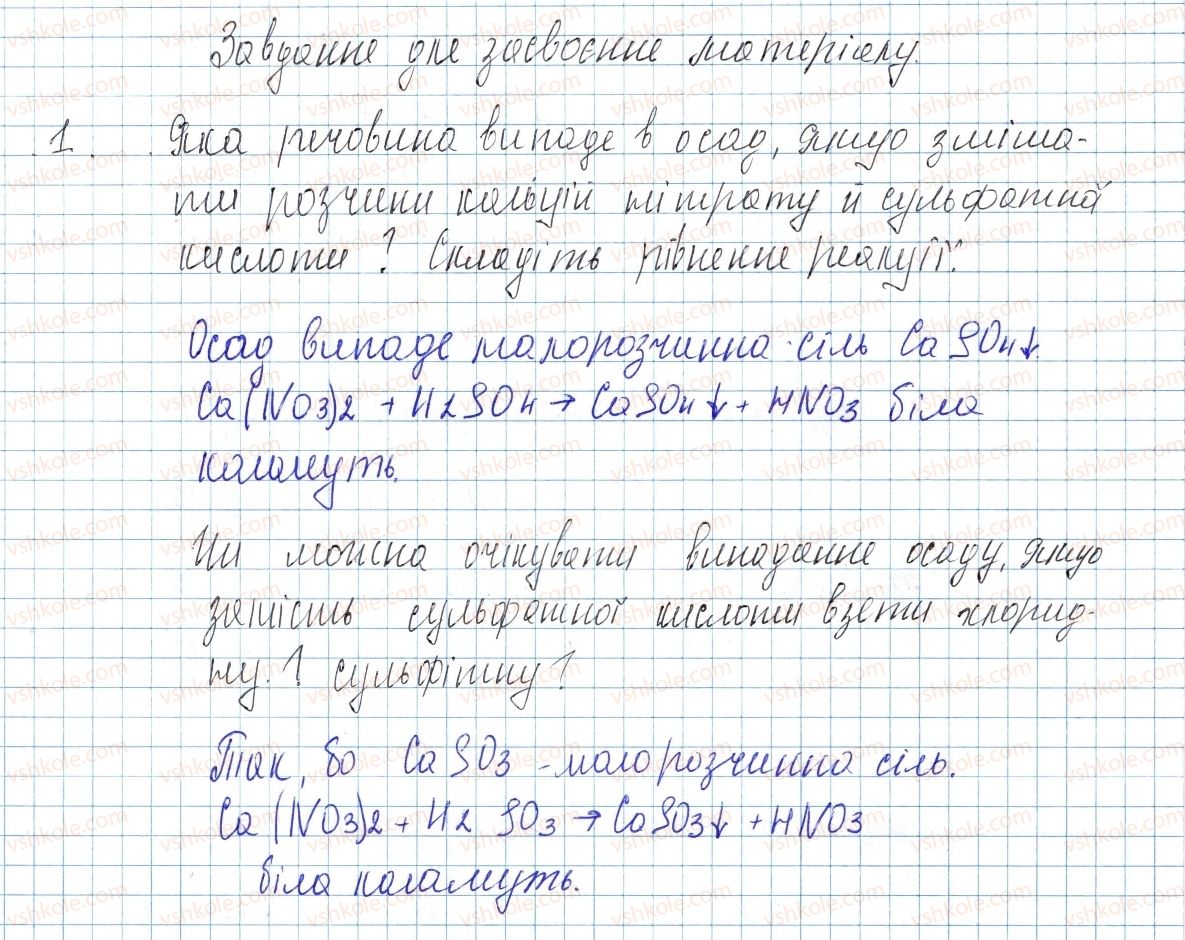 Завдання для засвоєння матеріалу.
1. Яка речовина випаде в осад, якщо зміша-
ти розчини кальцій нітрату й сульфатної
кислоти? Складіть рівняння реакції.
Осад випаде малорозчинна сіль CaSO4↓.
Ca(NO3)2 + H2SO4 → CaSO4↓ + HNO3 біла
каламуть.
Чи можна очікувати випадання осаду, якщо
замість сульфатної кислоти взяти хлорид-
ну? сульфітну?
Так, бо CaSO3 - малорозчинна сіль.
Ca(NO3)2 + H2SO3 → CaSO3↓ + HNO3
біла каламуть.
vshkole.com